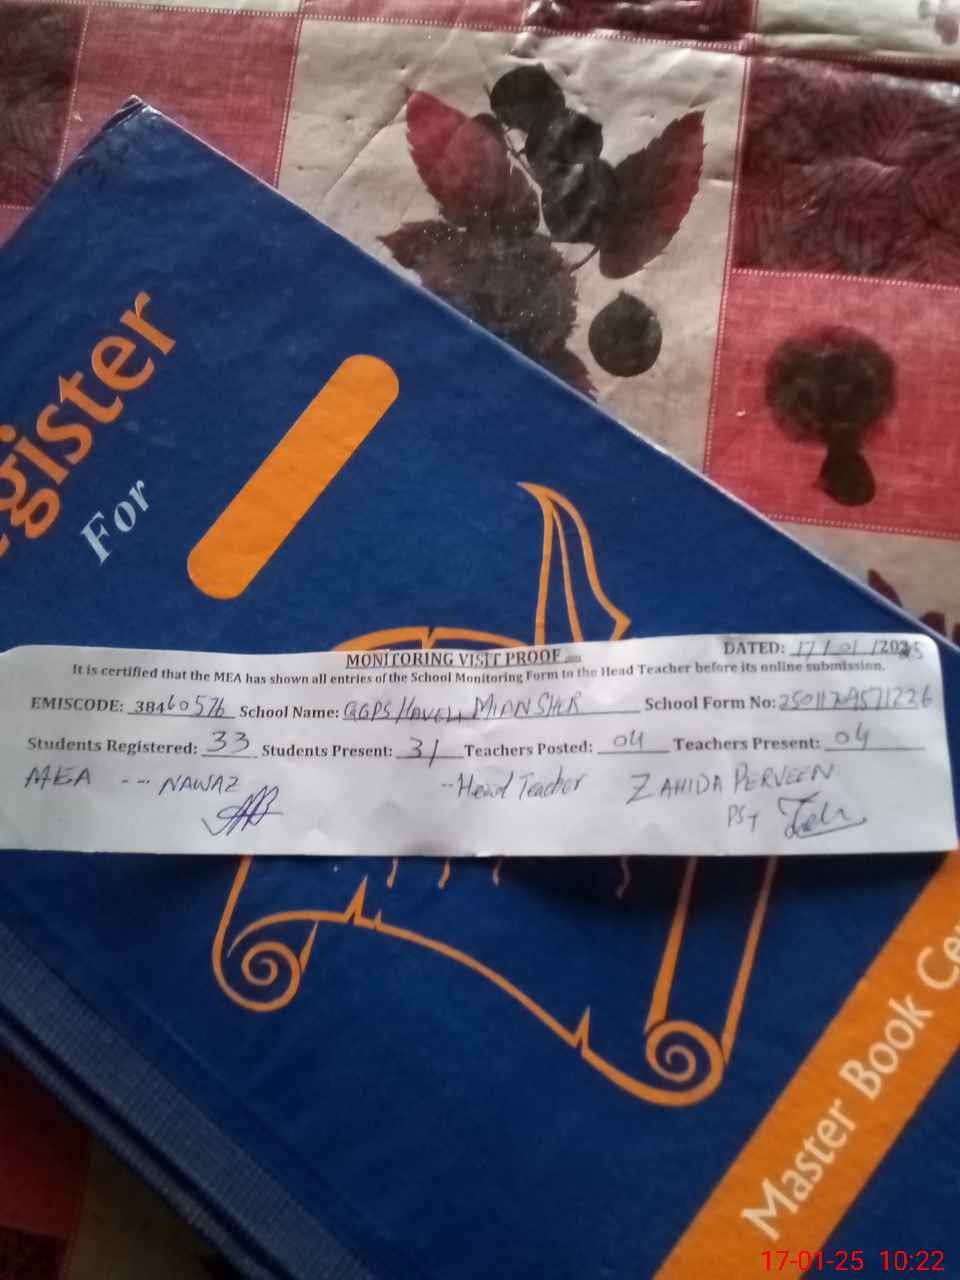 gister
For
MONITORING VISIT PROOF
DATED: 17/01/2025
It is certified that the MEA has shown all entries of the School Monitoring Form to the Head Teacher before its online submission.
EMISCODE: 38460576 School Name: GGPS HAVELI MIAN SHER School Form No: 25011709571226
Students Registered: 33 Students Present: 31 Teachers Posted: 04 Teachers Present: 04
MEA --- NAWAZ -- Head Teacher ZAHIDA PERVEEN
PST
Master Book Ce
17-01-25 10:22